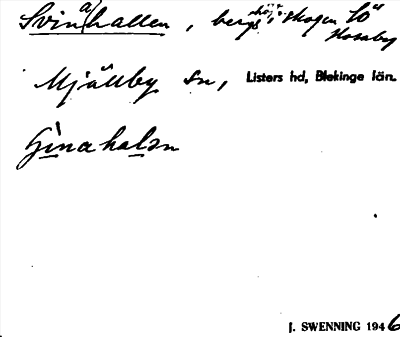 Svin(a)hallen, bergshöjd i skogen SÖ
Hosaby
Mjällby sn, Listers hd, Blekinge län.
J. SWENNING 1946